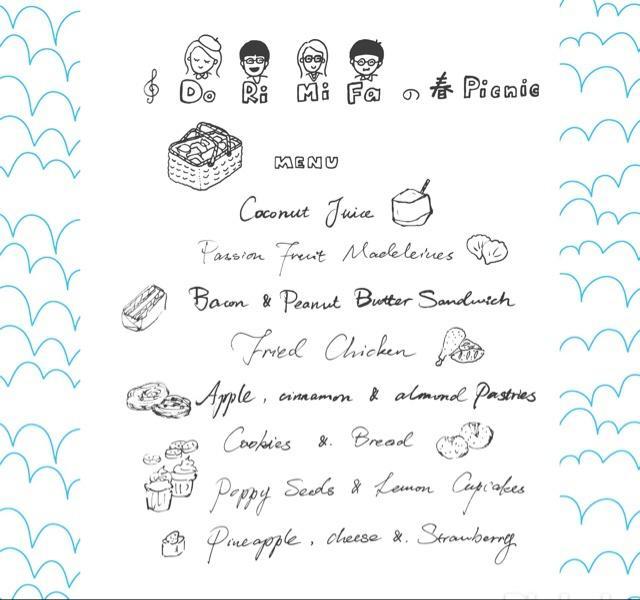 Do Ri Mi Fa の 春 Picnic
MENU
Coconut Juice
Passion Fruit Madeleines
Bacon & Peanut Butter Sandwich
Fried Chicken
Apple, cinnamon & almond Pastries
Cookies & Bread
Poppy Seeds & Lemon Cupcakes
Pineapple, cheese & Strawberry